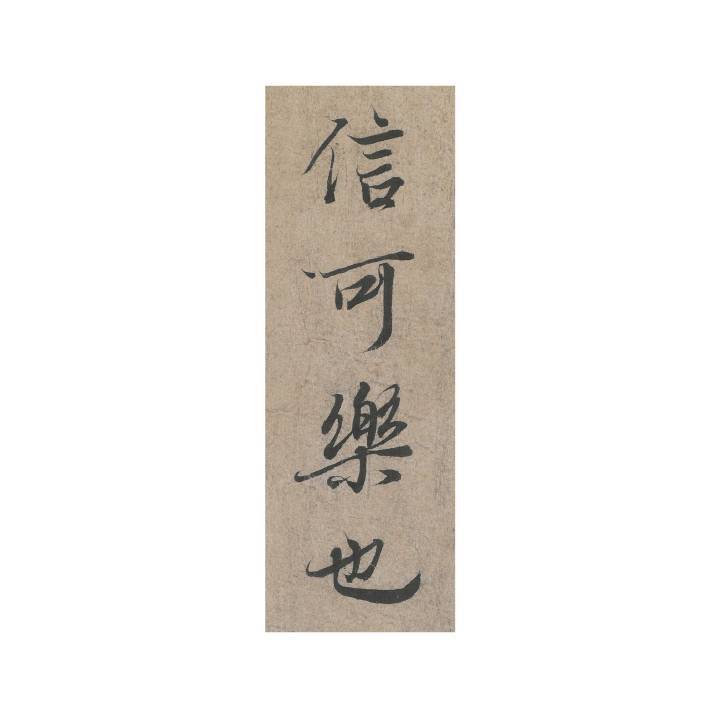 信可樂也